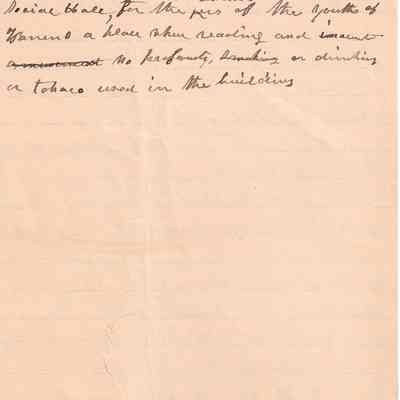 Social Hall, for the use of the youths of
Warren a place when reading and inocent
amusement no profanity, smoking or drinking
or tobaco used in the building